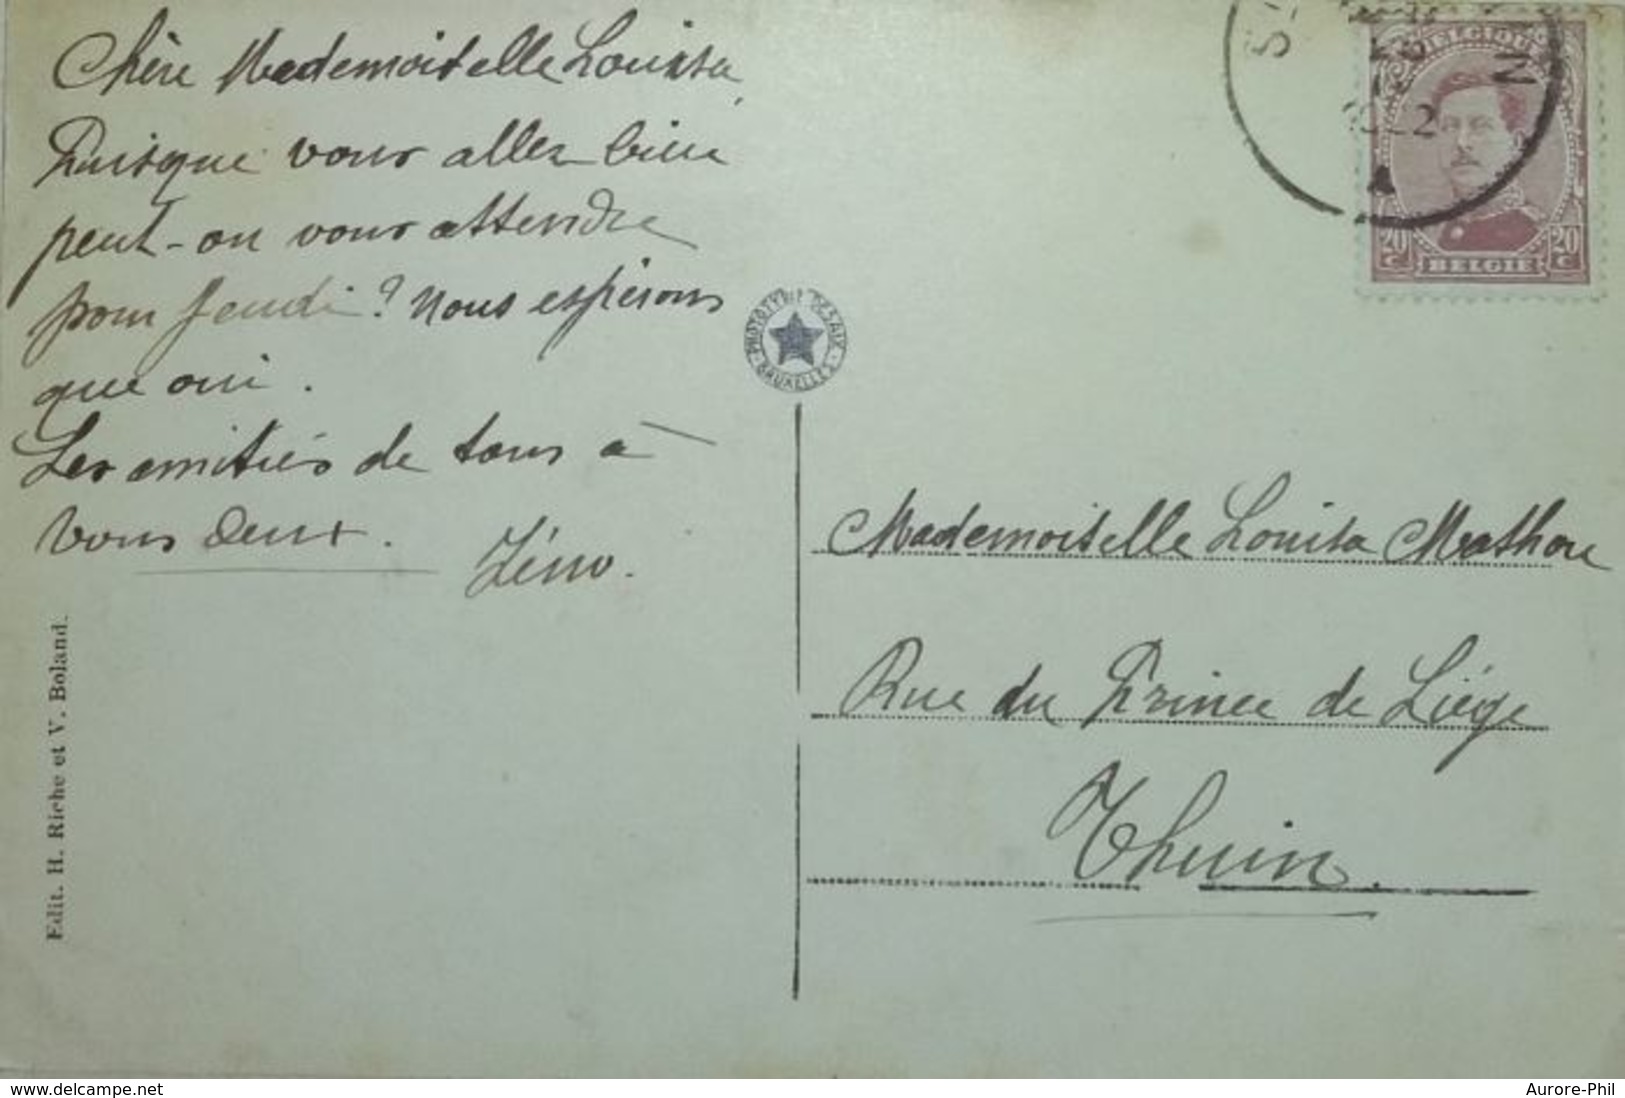 Chère Mademoiselle Louisa,
Puisque vous allez bien
peut-on vous attendre
pour Jeudi? Nous espérons
que oui.
Les amitiés de tous à
vous deux.
Zéno.
Edit. H. Riche et V. Boland.
PHOTOTYPIE DESAIX
BRUXELLES
BELGIQUE
20 c
20 c
BELGIE
Mademoiselle Louisa Mathou
Rue du Prince de Liège
Thuin.
www.delcampe.net
Aurore-Phil